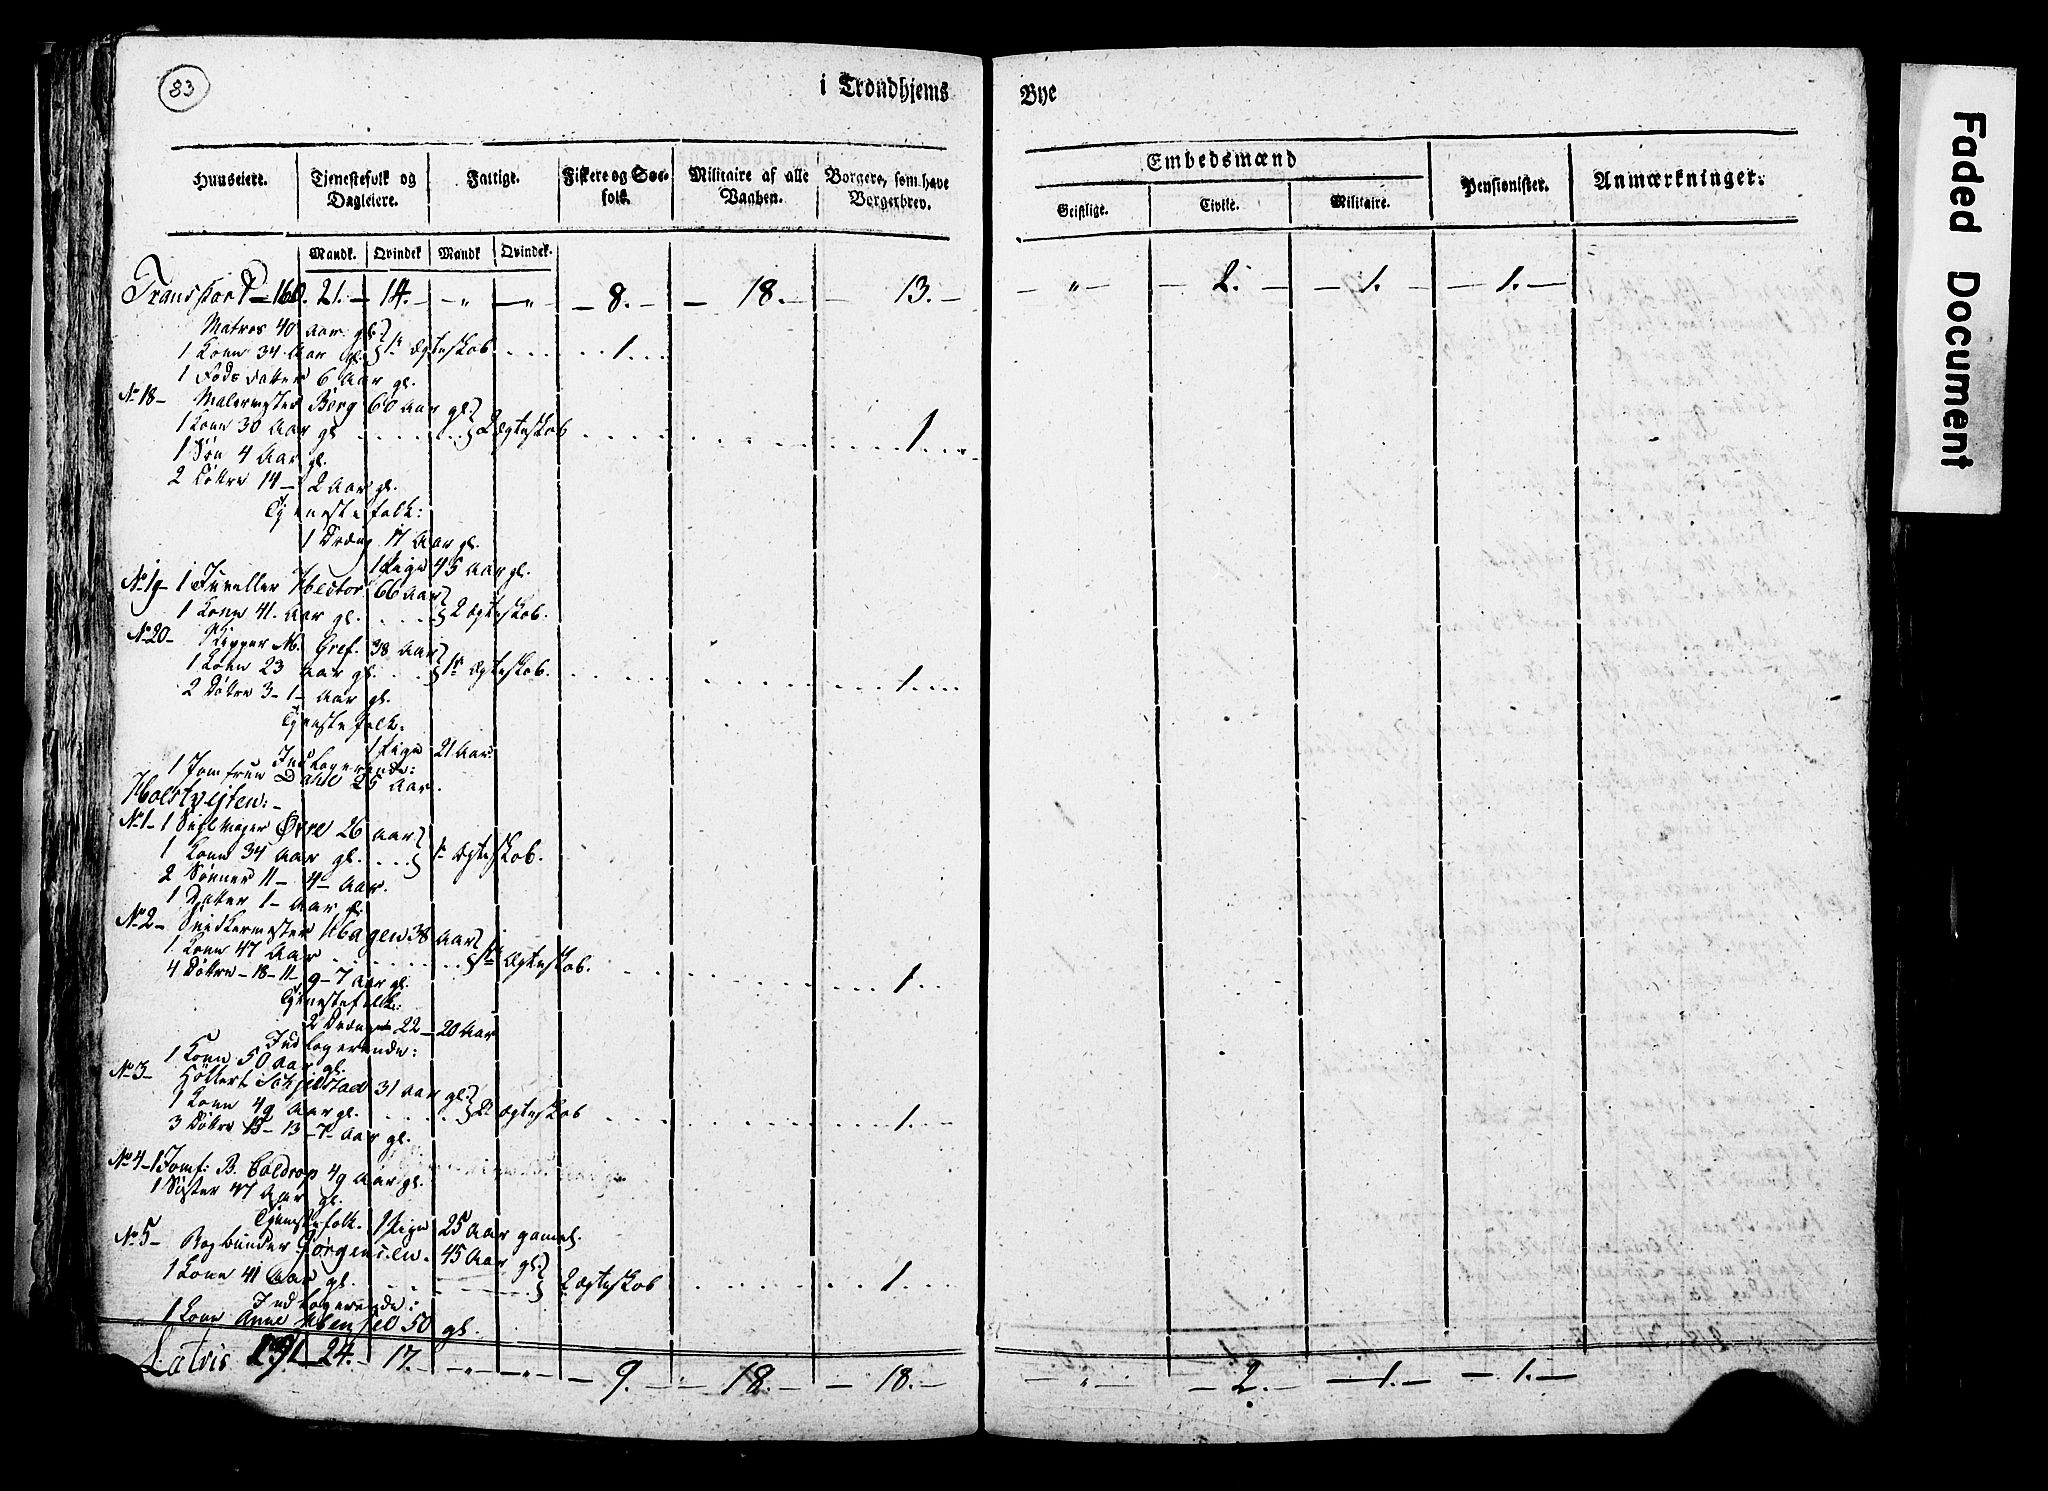 83
i Trondhjems Bye
Huuseiere. Tjenestefolk og Dagleiere. Fattige. Fiskere og Søe-folk. Militaire af alle Vaaben. Borgere, som have Borgerbrev. Embedsmænd Pensionister. Anmærkninger.
Geistlige. Civile. Militaire.
Mandk. Qvindek Mandk Qvindek.
Transport - 160. 21. - 14. - " - " - 8. - 18. - 13. - " - 2. - 1. - 1. -
Matros 40 aar gl.
1 Kone 34 Aar gl. } 1te Ægteskob . . . . . 1 . . .
1 Født Datter 6 Aar gl.
No 18 - Malermester Berg 60 Aar gl.
1 Kone 30 Aar gl . . . . . } 2 Ægteskob . . . . . 1 . . .
1 Søn 4 Aar gl.
2 Døttre 14 - 2 Aar gl.
Tjenestefolk:
1 Dreng 17 Aar gl.
1 Pige 45 aar gl.
No 19 - 1 Juveller Hector 66 aar
1 Kone 41. Aar gl. . . . } 2 Ægteskob.
No 20 - Skipper M. Gref. 38 Aar
1 Kone 23 Aar gl. . . . } 1te Ægteskob. . . . . 1 . . . .
2 Døttre 3 - 1 - Aar gl.
Tjenstefolk.
1 Pige 21 Aar.
Indlogerende:
1 Jomfrue Dahl 25 Aar.
Holstvejten: -
No 1 - 1 Sejlmager Øvre 26 aar
1 Kone 34 Aar gl. . . . } 1te Ægteskob.
2 Sønner 11 - 4 - Aar.
1 Datter 1 - Aar gl.
No 2 - Snidkermester Hagen 38 Aar
1 Kone 47 Aar . . . . . } 1te Ægteskob. . . . . 1 . .
4 Døttre - 18 - 11 - 9 - 7 Aar gl.
Tjenestefolk:
2 Drenge 22 - 20 Aar
Indlogerende:
1 Kone 50 Aar gl.
No 3 - 31 aar gl.
1 Kone 49 Aar gl. . . . . } 2 Ægteskob . . . . 1 . . .
3 Døttre 15 - 13 - 7 - Aar gl.
No 4 - 1 Jomf: B. Coldrop 49 Aar gl.
1 Søster 47 Aar gl.
Tjenestefolk. 1 Pige 25 Aar gamel.
No 5 - Bogbinder Jørgensen. 45 Aar gl.
1 Kone 41 Aar gl. . . . . } 2 Ægteskob . . . . 1 . . . .
Indlogerende:
1 Kone Anne 50 gl.
Latvis 191 24. - 17. - " - " - 9. - 18. - 18. - " - 2. - 1. - 1. -
Faded Document